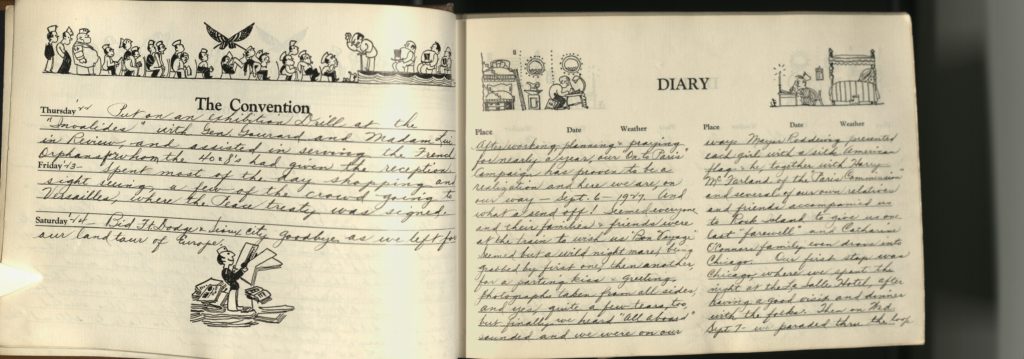 The Convention
Thursday 22 Put on an exhibition Drill at the
"Invalides" with Gen. Gourard and Madam
in Review, and assisted in serving the French
Orphans, whom the 40 & 8's had given the reception
Friday 23 - Spent most of the day shopping and
sight seeing, a few of the crowd going to
Versailles, where the Peace treaty was signed.
Saturday 24 Bid Ft. Dodge & Sioux City goodbye as we left for
our land tour of Europe.
DIARY
Place Date Weather
After working, planning & praying
for nearly a year, our "On to Paris"
campaign has proven to be a
realization and here we are, on
our way - Sept. 6 - 1927. And
what a send off! Seemed everyone
and their families & friends were
at the train to wish us "Bon Voyage"
Seemed but a wild night mare, being
grabbed by first one, then another,
for a parting kiss & greeting,
photographs taken from all sides,
and yes, quite a few tears, too,
but finally we heard "All Aboard"
sounded and we were on our
Place Date Weather
way. Mayor presented
each girl with a silk American
flag & he, together with Harry
McFarland of the Paris Commission
and several of our own relatives
and friends accompanied us
to Rock Island to give us one
last "farewell" and Catharine
O'Connors family even drove into
Chicago. Our first stop was
Chicago, where we spent the
night at the La Salle Hotel, after
having a good visit and dinner
with the folks. Then on Wed.
Sept 7 - we paraded thru the loop